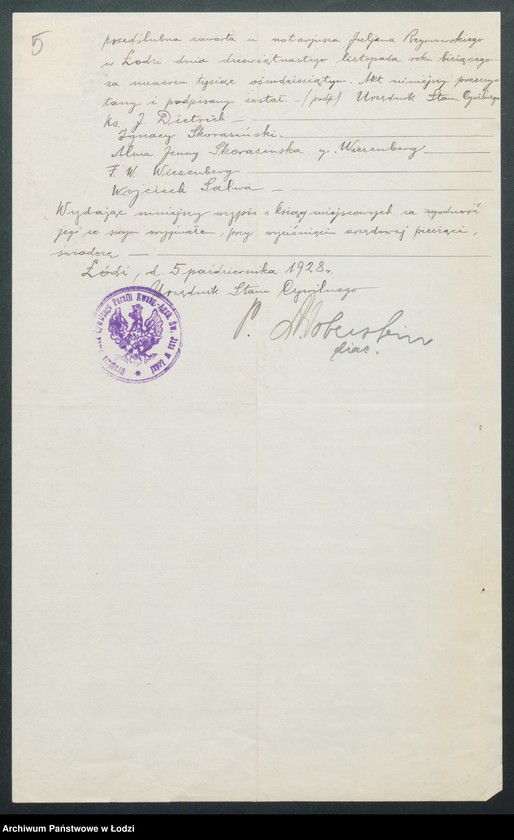 5
przedślubna zawarta u notarjusza Juljana Rzymowskiego
w Łodzi dnia dziewiętnastego listopada roku bieżącego
za numerem tysiąc ośmdziesiątym. Akt niniejszy przeczy-
tany i podpisany został. – (podp.) Urzędnik Stanu Cywilnego
Ks. J. Dietrich –
Ignacy Skorasiński. –
Alma Jenny Skorasińska g. Wiesenberg –
F. W. Wiesenberg –
Wojciech Salwa –
Wydając niniejszy wypis z ksiąg miejscowych za zgodność
jego ze swym oryginałem, przy wyciśnięciu urzędowej pieczęci,
świadczę –
Łódź, d. 5 października 1928 r.
Urzędnik Stanu Cywilnego
P.
diac.
Parafji Ewang.-Augs. Św. Jana w Łodzi
Archiwum Państwowe w Łodzi